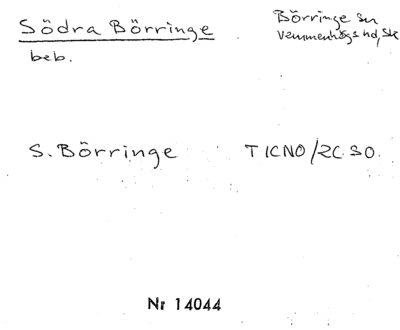 Södra Börringe
Börringe sn
Vemmenhögs hd, Sk
beb.
S. Börringe TICNO/2C.SO.
Nr 14044